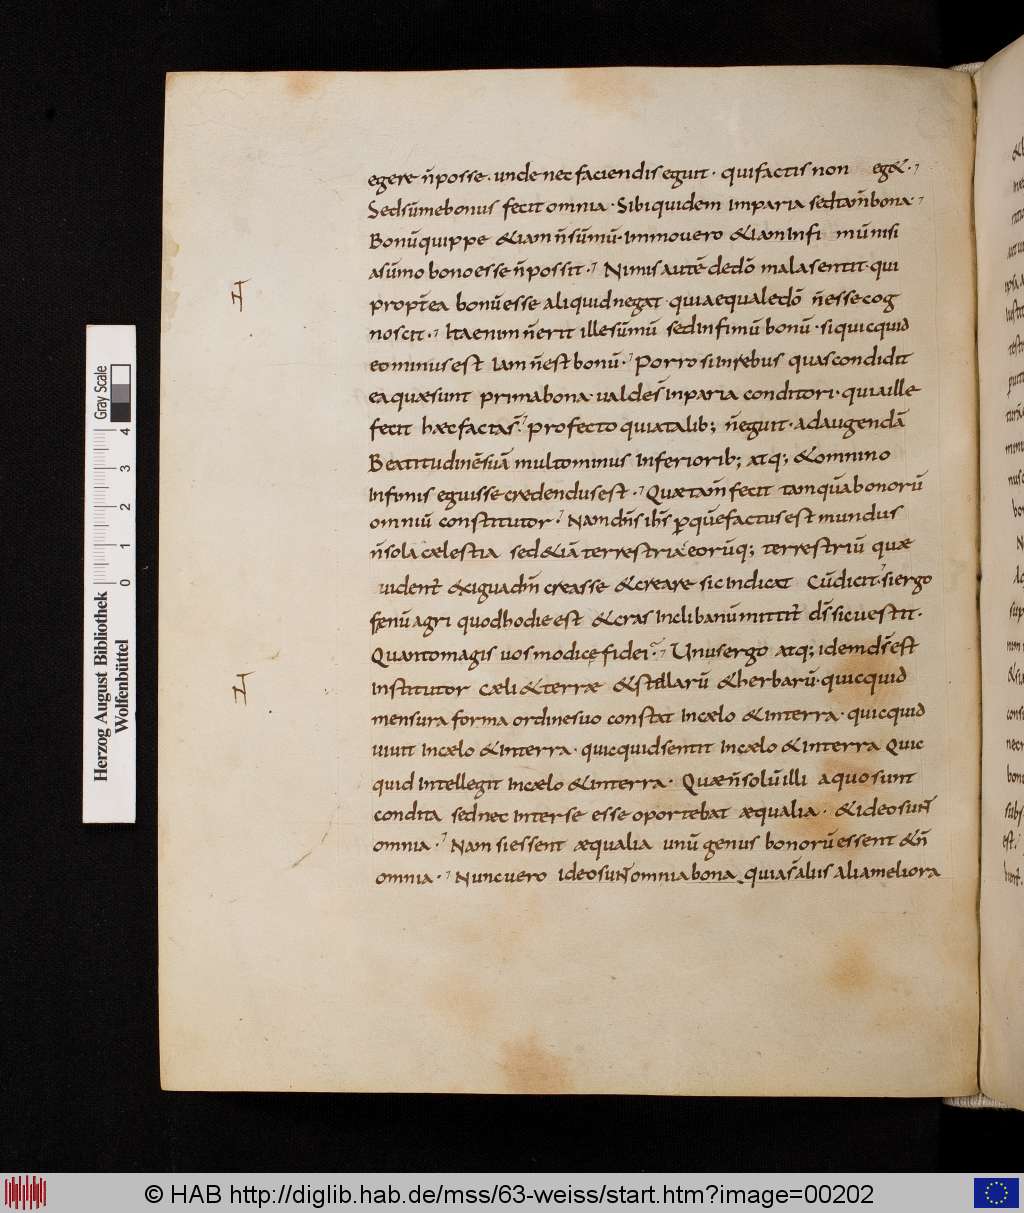 egere n̄ posse. unde nec faciendis eguit· qui factis non eg&·
Sed sūme bonus fecit omnia· Sibi quidem imparia sed tam̄ bona·
Bonū quippe &iam n̄ sūmū· Immo vero &iam infi mū nisi
a sūmo bono esse n̄ possit· Nimis autē de dō mala sentit· qui
propt̄ea bonū esse aliquid negat· quia equale dō n̄ esse cog
noscit· Ita enim n̄ erit ille sūmū sed infimū bonū· si quicquid
eo minus est iam n̄ est bonū· Porro si in rebus quas condidit
ea quæ sunt prima bona· valde s̄ inparia conditori· quia ille
fecit hæc facta s̄· profecto quia talib; n̄ eguit· ad augendā
Beatitudinē suā multo minus inferiorib; atq; & omnino
infimis eguisse credendus est· Quæ tam̄ fecit tamquā bonorū
omniū constitutor· Nam dn̄s ih̄s ꝑ quē factus est mundus
n̄ sola cælestia sed &iā terrestria· eorūq; terrestriū quæ
uident̄ exigua dm̄ creasse & creare sic indicat cū dicit· si ergo
fenū agri quod hodie est & cras in clibanū mittit̄ ds̄ sic uestit·
Quanto magis uos modicę fidei· Unus ergo atq; idem ds̄ est
institutor cæli & terræ & stellarū & herbarū· quicquid
mensura forma ordine suo constat in cælo & in terra· quicquid
uiuit in cælo & in terra· quicquid sentit in cælo & in terra Quic
quid intellegit in cælo & in terra· Quæ n̄ solū illi a quo sunt
condita sed nec inter se esse oportebat æqualia· & ideo sunt̄
omnia· Nam si essent æqualia unū genus bonorū essent & n̄
omnia· Nunc uero ideo sunt̄ omnia bona quia s̄ alus alia meliora
Herzog August Bibliothek
Wolfenbüttel
0 1 2 3 4
Gray Scale
© HAB http://diglib.hab.de/mss/63-weiss/start.htm?image=00202